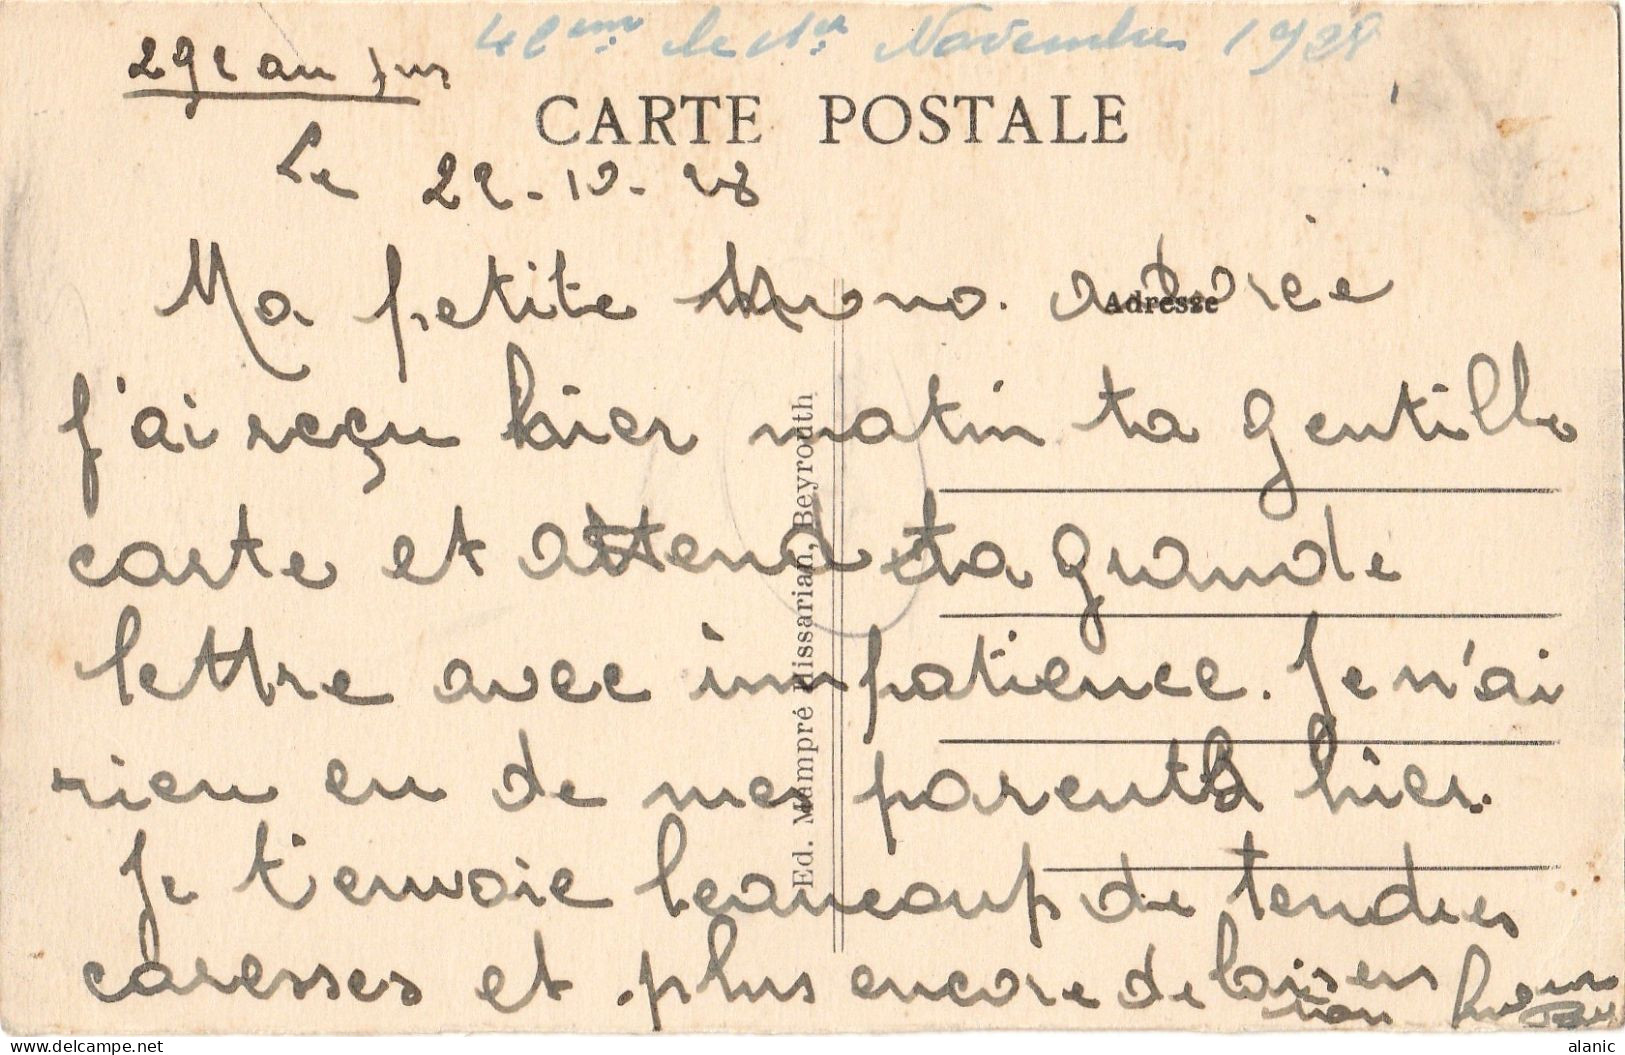 le 1er Novembre 1928
29e au jus
CARTE POSTALE
Le 22-10-28
Ma petite Nono. adorée
Adresse
J'ai reçu hier matin ta gentille
carte et attend ta grande
lettre avec impatience. Je n'ai
rien eu de mes parents hier.
Je t'envoie beaucoup de tendres
caresses et plus encore de baisers
ton
Ed. Mampré Hissarian, Beyrouth
alanic